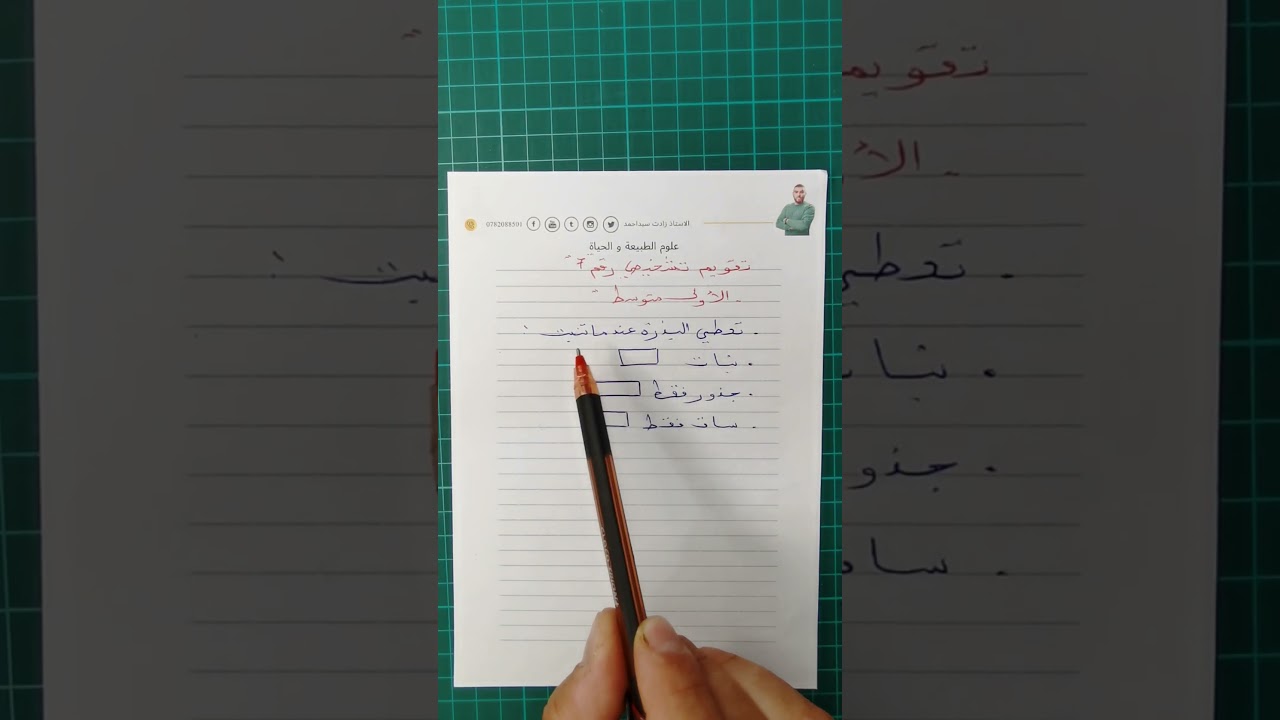 الاستاذ زادت سيداحمد 0782088591
علوم الطبيعة و الحياة
تقويم تشخيصي رقم 7
. الأولى متوسط "
. تعطي البذرة عندما تنبت :
. نبات
. جذور فقط
. ساق فقط
تقويم
. الأ
. تعطي
. نبا
. جذو
. سا